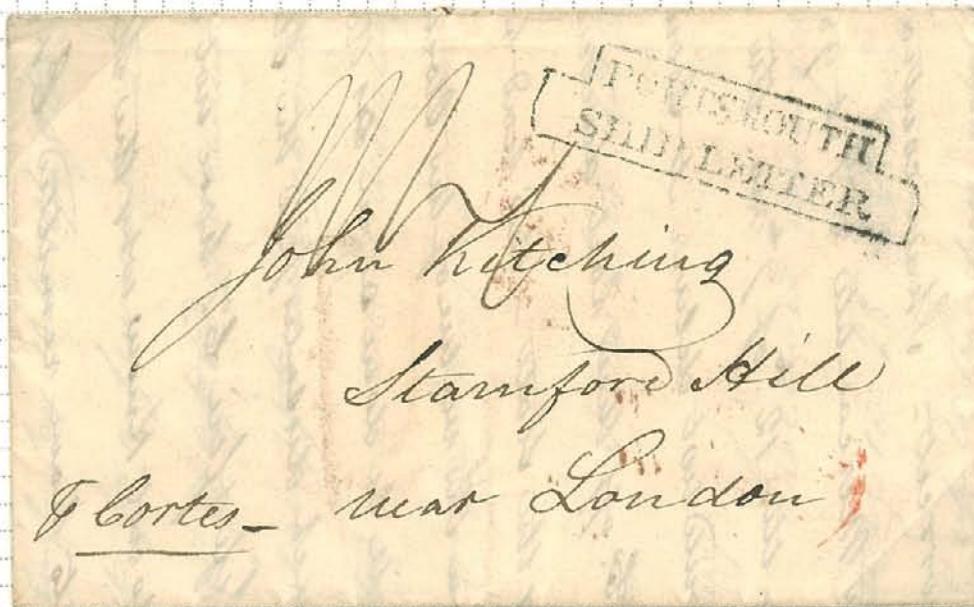 PORTSMOUTH
SHIP LETTER
John Kitching
Stamford Hill
near London
⅌ Cortes